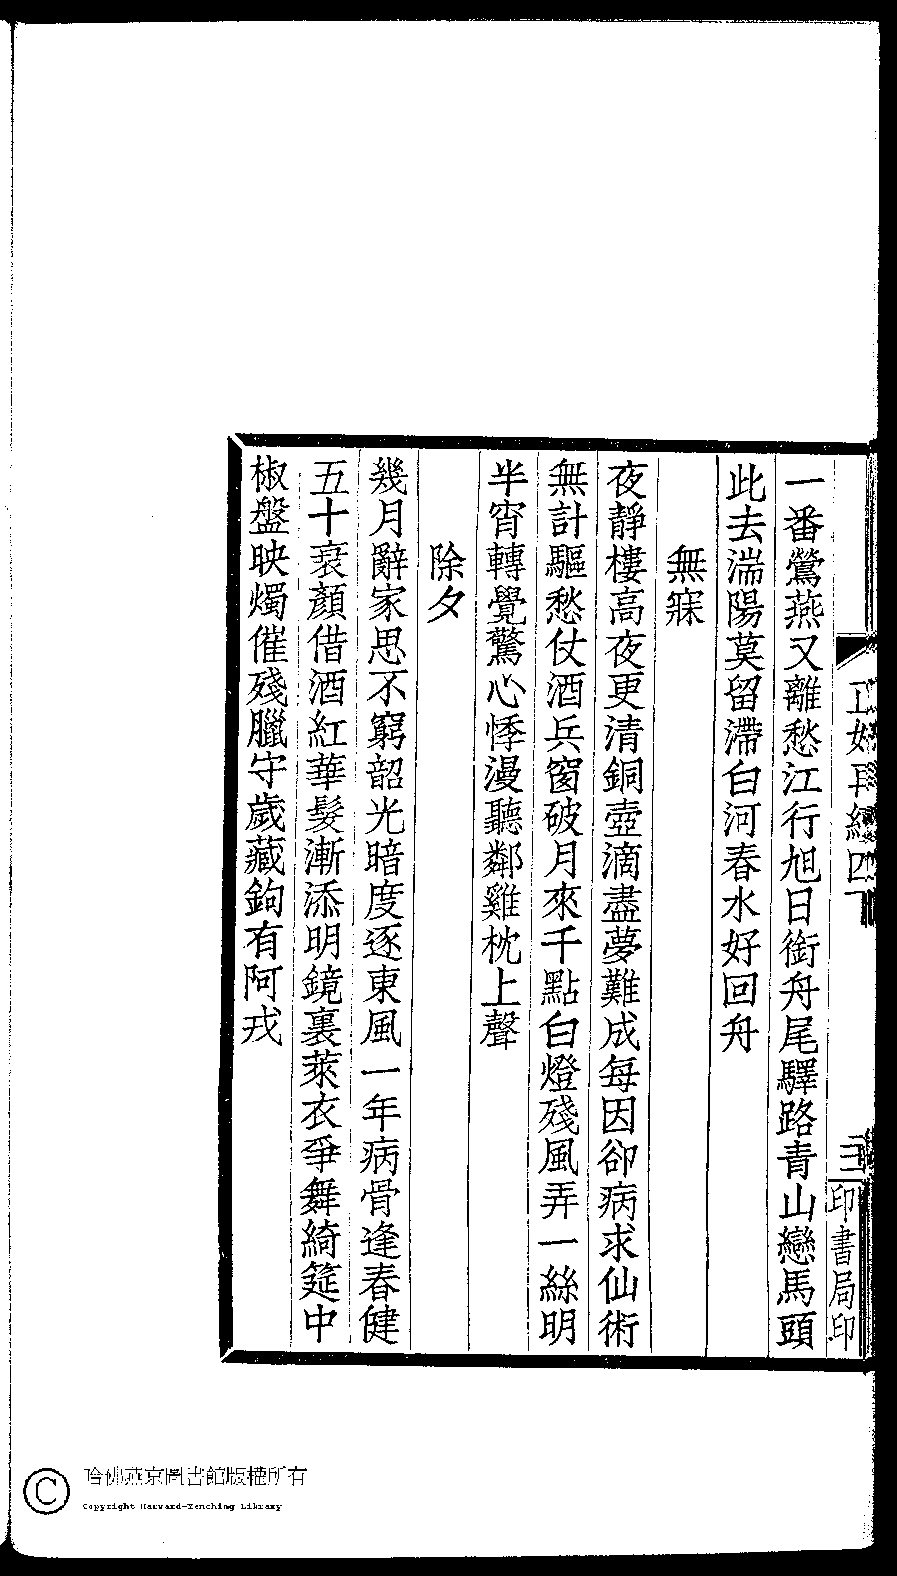 一番鶯燕又離愁江行旭日銜舟尾驛路青山戀馬頭
此去湍陽莫留滯白河春水好回舟
無寐
夜靜樓高夜更清銅壺滴盡夢難成每因卻病求仙術
無計驅愁仗酒兵窗破月來千點白燈殘風弄一絲明
半宵轉覺驚心悸漫聽鄰雞枕上聲
除夕
幾月辭家思不窮韶光暗度逐東風一年病骨逢春健
五十衰顏借酒紅華髮漸添明鏡裏萊衣爭舞綺筵中
椒盤映燭催殘臘守歲藏鉤有阿戎
印書局印
哈佛燕京圖書館版權所有
Copyright Harvard-Yenching Library